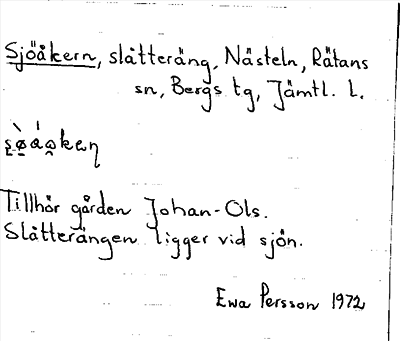 Sjöåkern, slåtteräng, Nästeln, Rätans
sn, Bergs tg, Jämtl. l.
Tillhör gården Johan-Ols.
Slåtterängen ligger vid sjön.
Ewa Persson 1972